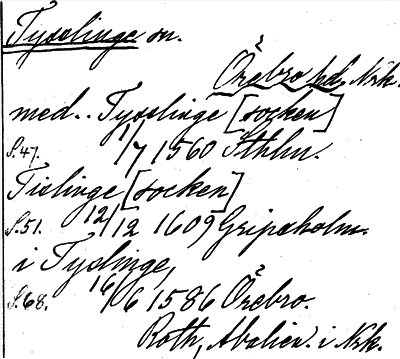 Tysslinge sn.
Örebro hd. Nrk.
med.. Tysslinge [socken]
S.47. 1/7 1560 Sthlm.
Tislinge [socken]
S.51. 12/12 1609 Gripsholm.
i Tyslinge,
S.68. 16/6 1586 Örebro.
Roth, Abalien. i Nrk.